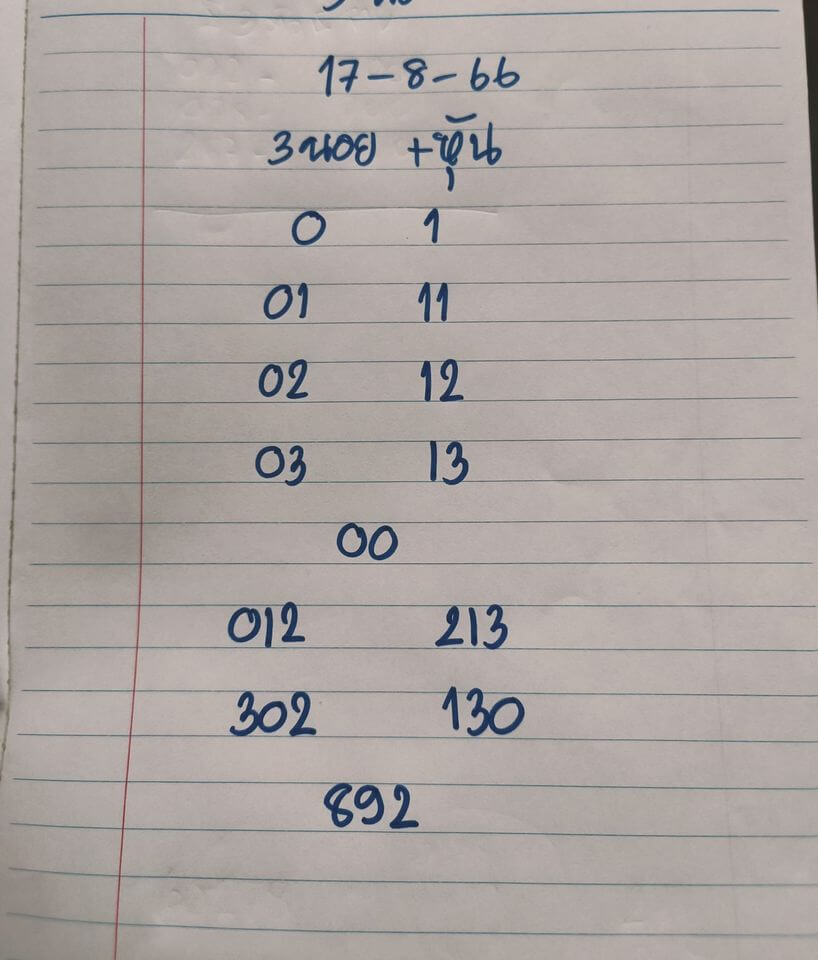 17-8-66
3นอย +หุ้น
0 1
01 11
02 12
03 13
00
012 213
302 130
892